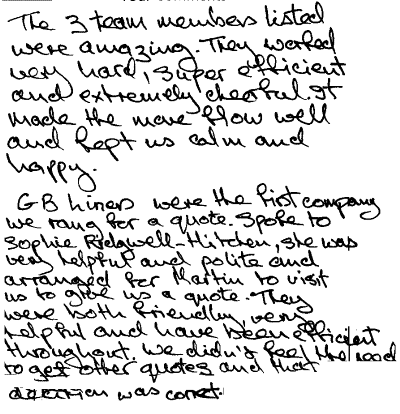 The 3 team members listed
were amazing. They worked
very hard, super efficient
and extremely cheerful. It
made the move flow well
and kept us calm and
happy.
GB Liners were the first company
we rang for a quote. Spoke to
Sophie Ridgwell-Hitchen, she was
very helpful and polite and
arranged for Martin to visit
us to give us a quote. They
were both friendly, very
helpful and have been efficient
throughout. We didn't feel the need
to get other quotes and that
decision was correct.